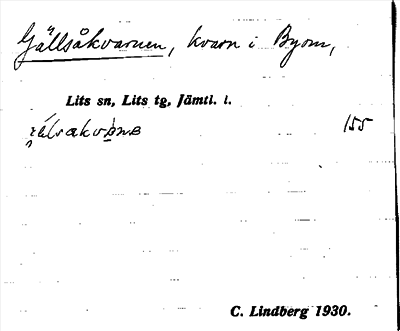 Gällsåkvarnen, kvarn i Byom,
Lits sn, Lits tg, Jämtl. l.
155
C. Lindberg 1930.